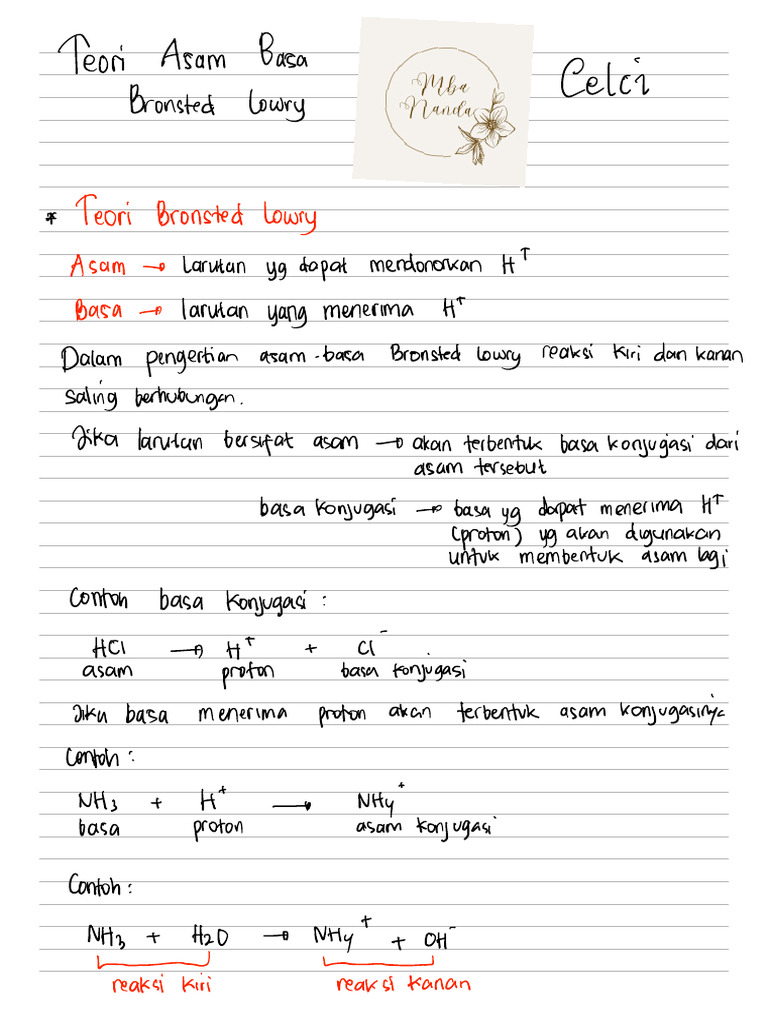 Teori Asam Basa
Bronsted Lowry
Mba
Nanda
Celci
* Teori Bronsted Lowry
Asam → Larutan yg dapat mendonorkan H⁺
Basa → larutan yang menerima H⁺
Dalam pengertian asam-basa Bronsted Lowry reaksi kiri dan kanan
saling berhubungan.
Jika larutan bersifat asam → akan terbentuk basa konjugasi dari
asam tersebut
basa konjugasi → basa yg dapat menerima H⁺
(proton) yg akan digunakan
untuk membentuk asam lagi
Contoh basa konjugasi :
HCl → H⁺ + Cl⁻
asam proton basa konjugasi
Jika basa menerima proton akan terbentuk asam konjugasinya
Contoh :
NH₃ + H⁺ → NH₄⁺
basa proton asam konjugasi
Contoh :
NH₃ + H₂O → NH₄⁺ + OH⁻
reaksi kiri reaksi kanan